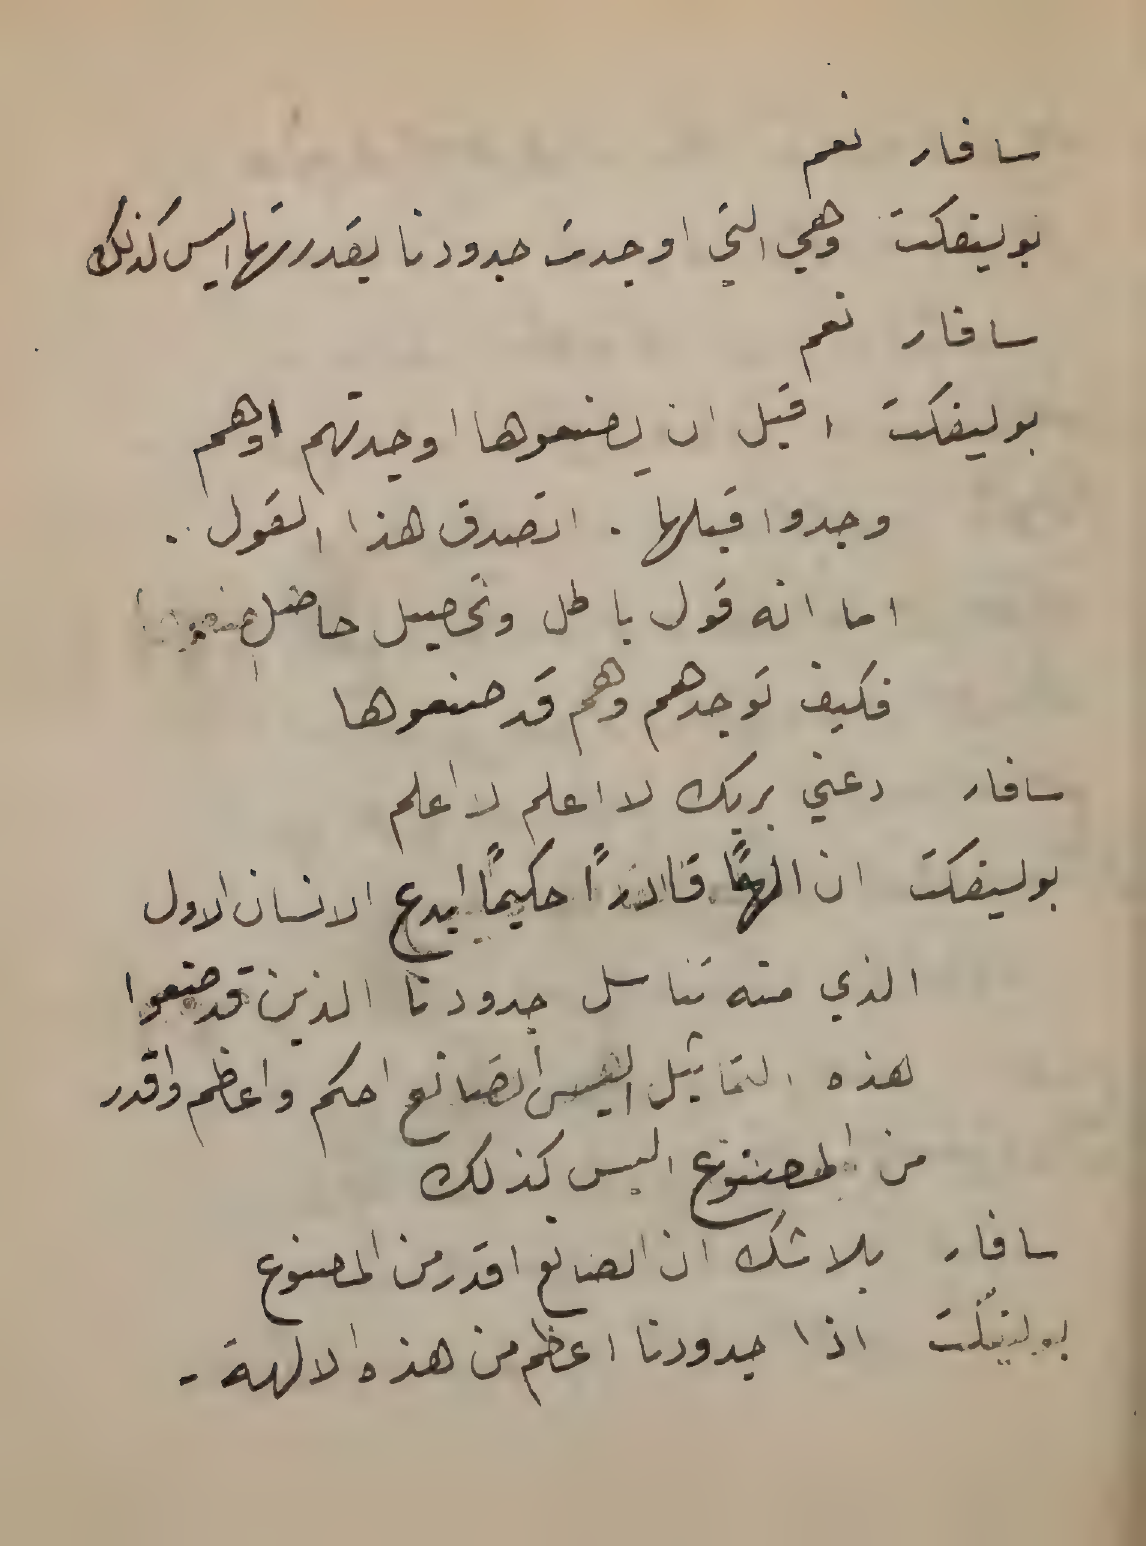 سافار نعم
بوليفكت وهي التي اوجدت جدودنا بقدرتها اليس كذلك
سافار نعم
بوليفكت اقبل ان يصنعوها اوجدتهم اوهم
وجدوا قبلها . اتصدق هذا القول .
اما انه قول باطل وتحصيل حاصل
فكيف توجدهم وهم قد صنعوها
سافار دعني بربك لا اعلم لا اعلم
بوليفكت ان الهًا قادرًا حكيمًا ابدع الانسان الاول
الذي منه تناسل جدودنا الذين قد صنعوا
هذه التماثيل اليس الصانع احكم واعظم واقدر
من المصنوع اليس كذلك
سافار بلا شك ان الصانع اقدر من المصنوع
بوليفكت اذا جدودنا اعظم من هذه الالهة -